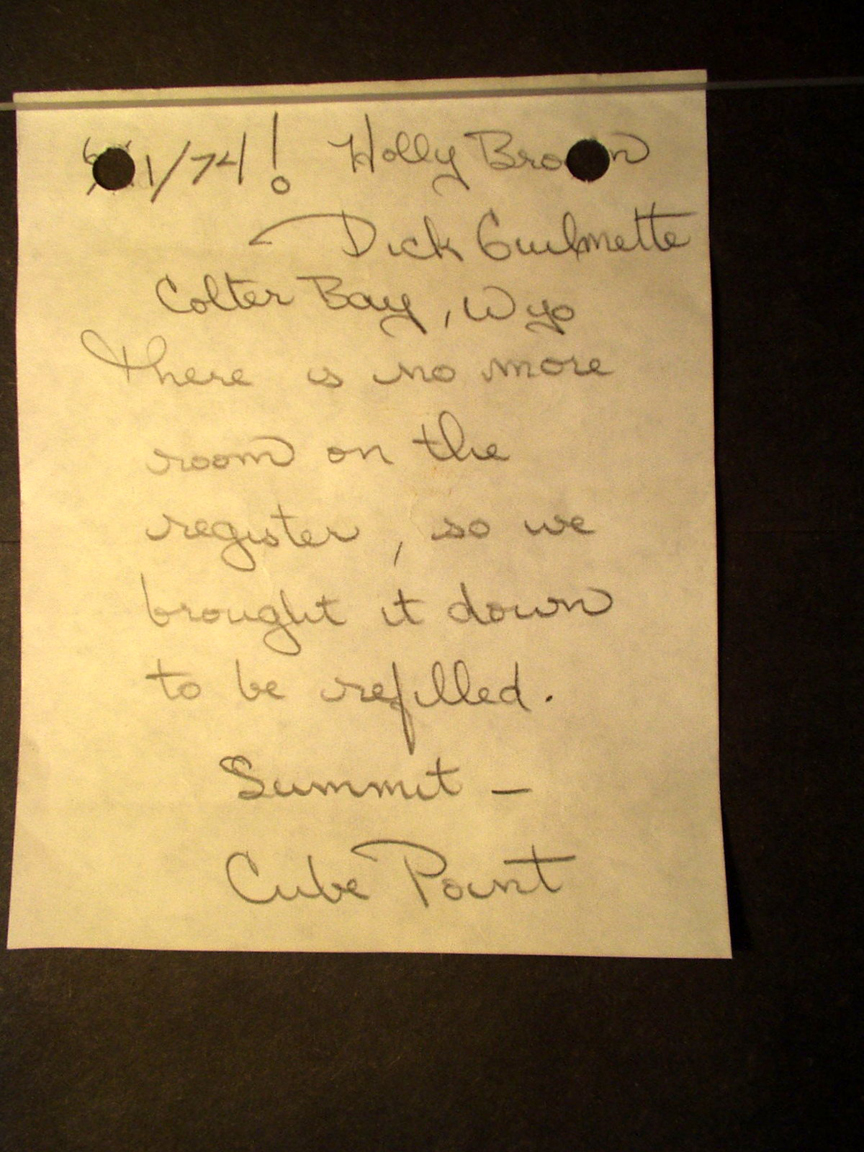 1/74! Holly Brown
Dick Guilmette
Colter Bay, Wyo
There is no more
room on the
register, so we
brought it down
to be refilled.
Summit —
Cube Point